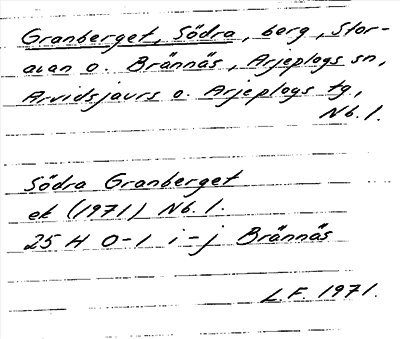 Granberget, Södra, berg, Stor-
avan o. Brännäs, Arjeplogs sn,
Arvidsjaurs o. Arjeplogs tg,
Nb. l.
Södra Granberget
ek (1971) Nb. l.
25 H 0-1 i-j Brännäs
L.F. 1971.